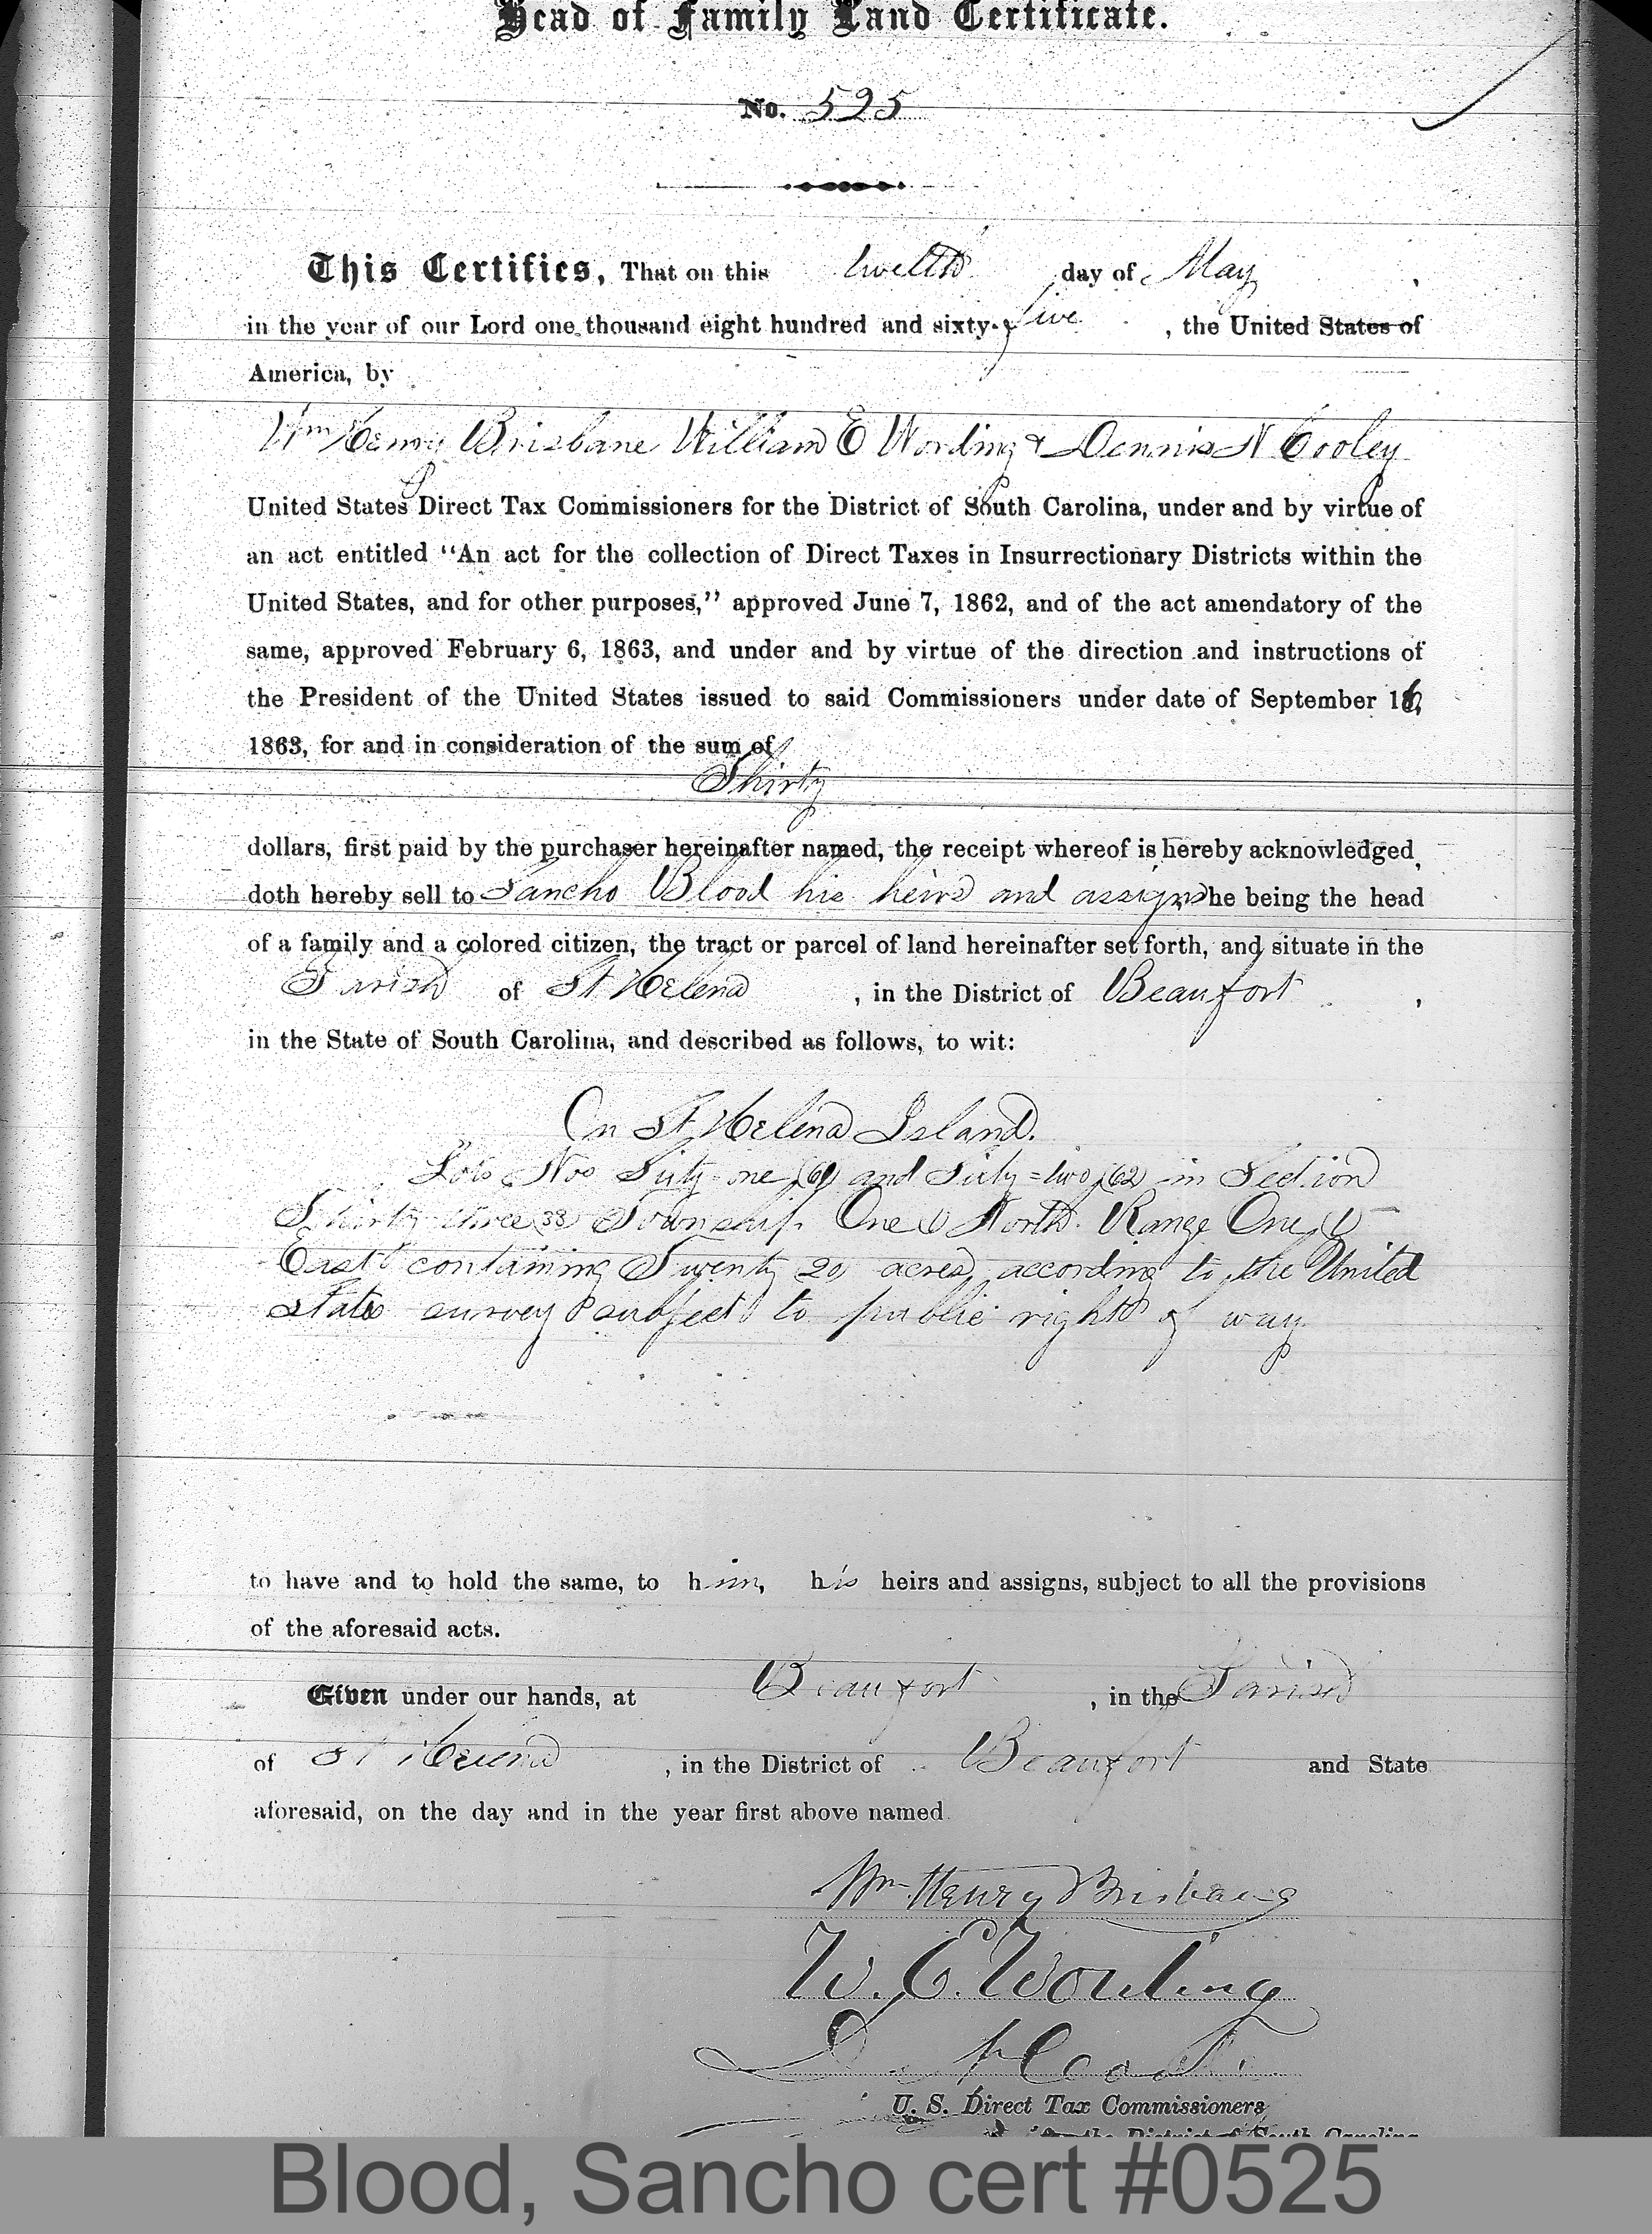 Head of Family Land Certificate.
No. 525
This Certifies, That on this twelfth day of May,
in the year of our Lord one thousand eight hundred and sixty-five, the United States of
America, by
Wm Henry Brisbane William E Wording & Dennis N Cooley
United States Direct Tax Commissioners for the District of South Carolina, under and by virtue of
an act entitled "An act for the collection of Direct Taxes in Insurrectionary Districts within the
United States, and for other purposes," approved June 7, 1862, and of the act amendatory of the
same, approved February 6, 1863, and under and by virtue of the direction and instructions of
the President of the United States issued to said Commissioners under date of September 16,
1863, for and in consideration of the sum of
Thirty
dollars, first paid by the purchaser hereinafter named, the receipt whereof is hereby acknowledged,
doth hereby sell to Sancho Blood his heirs and assigns he being the head
of a family and a colored citizen, the tract or parcel of land hereinafter set forth, and situate in the
Parish of St Helena, in the District of Beaufort,
in the State of South Carolina, and described as follows, to wit:
On St Helena Island.
Lots Nos Sixty-one (61) and Sixty=two (62) in Section
Thirty three (33) Township One (1) North Range One (1)
East containing Twenty 20 acres, according to the United
States survey subject to public right of way
to have and to hold the same, to him, his heirs and assigns, subject to all the provisions
of the aforesaid acts.
Given under our hands, at Beaufort, in the Parish
of St Helena, in the District of Beaufort and State
aforesaid, on the day and in the year first above named
Wm Henry Brisbane
W. E. Wording
U. S. Direct Tax Commissioners
for the District of South Carolina
Blood, Sancho cert #0525